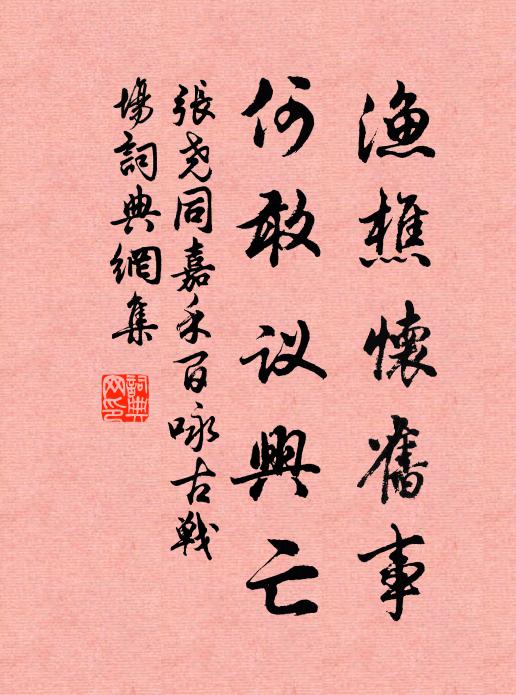 渔樵懷舊事
何敢议興亡
張尧同嘉禾百咏古戰
場詞典網集
詞典
网印